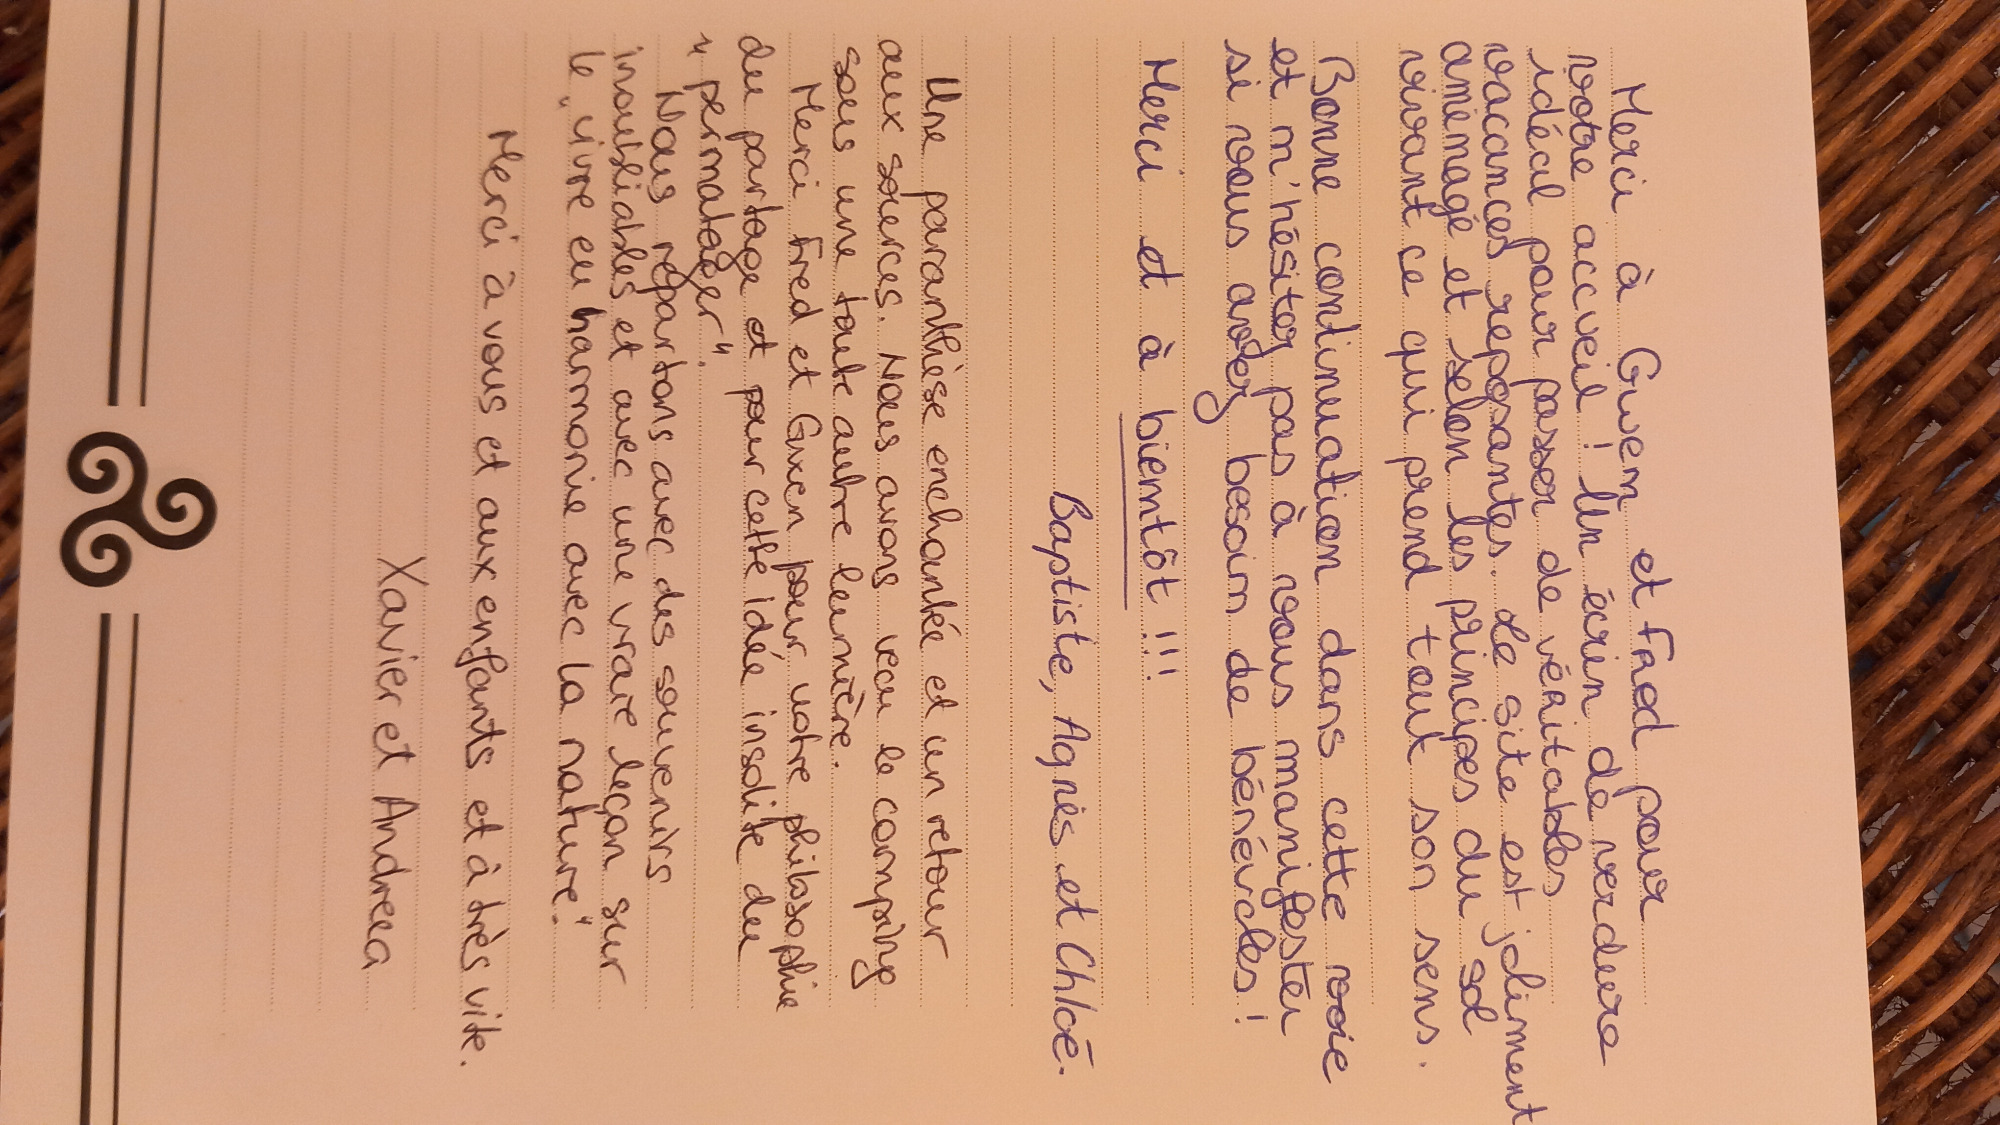 Merci à Gwen et Fred pour
votre accueil ! Un écrin de verdure
idéal pour passer de véritables
vacances reposantes. Le site est joliment
aménagé et selon les principes du sol
vivant ce qui prend tout son sens.
Bonne continuation dans cette voie
et n'hésiter pas à vous manifester
si vous avez besoin de bénévoles !
Merci et à bientôt !!!
Baptiste, Agnès et Chloé.
Une paranthèse enchantée et un retour
aux sources. Nous avons vécu le camping
sous une toute autre lumière.
Merci Fred et Gwen pour votre philosophie
du partage et pour cette idée insolite du
"permatager".
Nous repartons avec des souvenirs
inoubliables et avec une vraie leçon sur
le "vivre en harmonie avec la nature".
Merci à vous et aux enfants et à très vite.
Xavier et Andrea